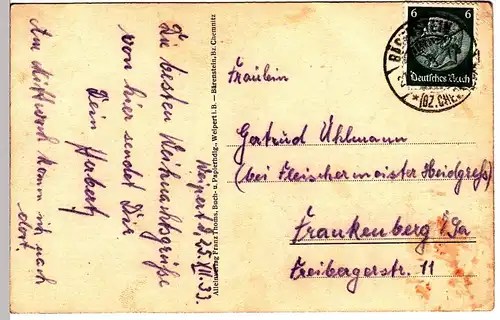 Weipert d. 25. XII. 33.
Die besten Weihnachtsgrüße
von hier sendet Dir
Dein Herbert
Am Mittwoch komm ich nach
dort.
Alleinverlag Franz Thoms, Buch- u. Papierhdlg., Weipert i. B. – Bärenstein, Bz. Chemnitz
6 6
Deutsches Reich
(BZ. CHE
Fräulein
Gertrud Uhlmann
(bei Fleischermeister Heidgreß)
Frankenberg i/Sa
Freibergerstr. 11